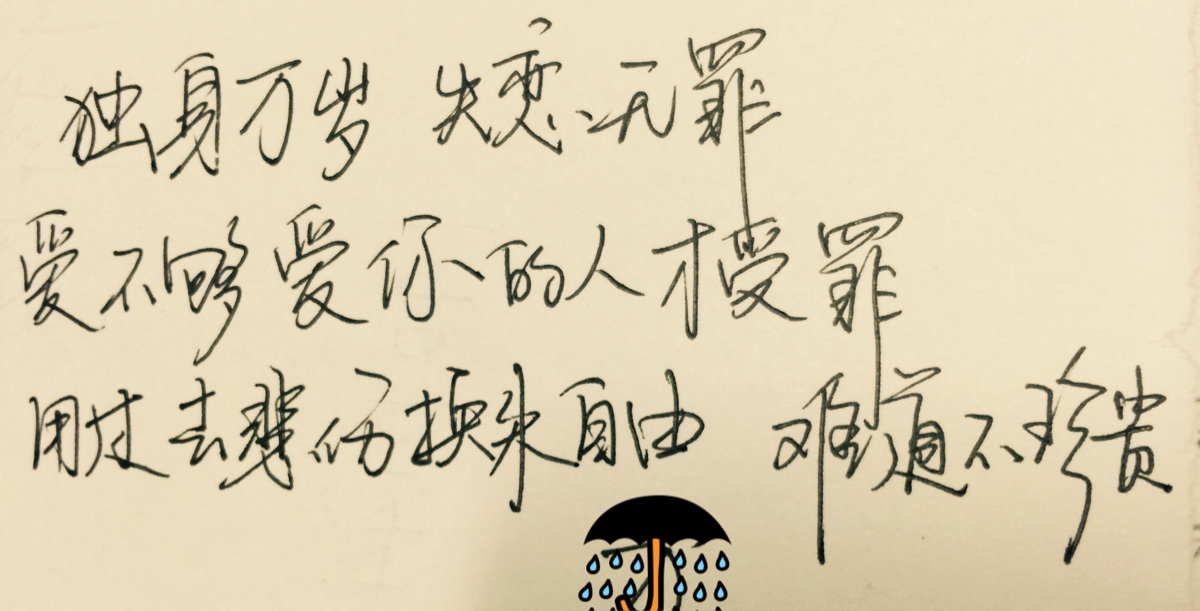 独身万岁 失恋无罪
爱不够爱你的人才受罪
用过去悲伤换来自由 难道不珍贵